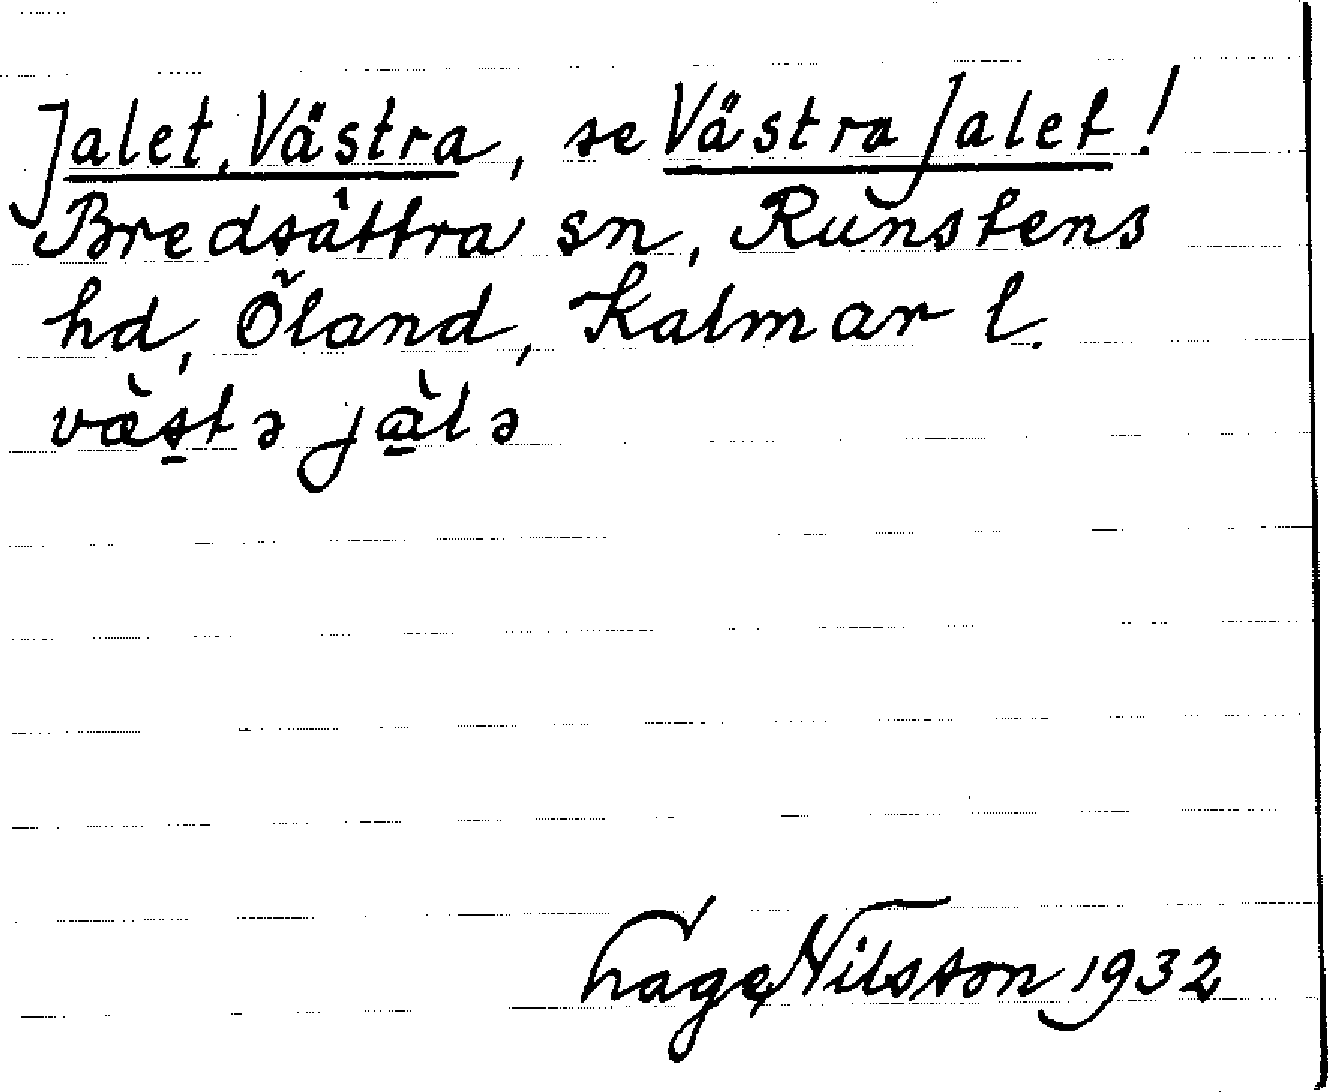 Jalet, Västra, se Västra Jalet!
Bredsättra sn, Runstens
hd, Öland, Kalmar l.
væ̀s̠tə jàlə
Hage Nilsson 1932